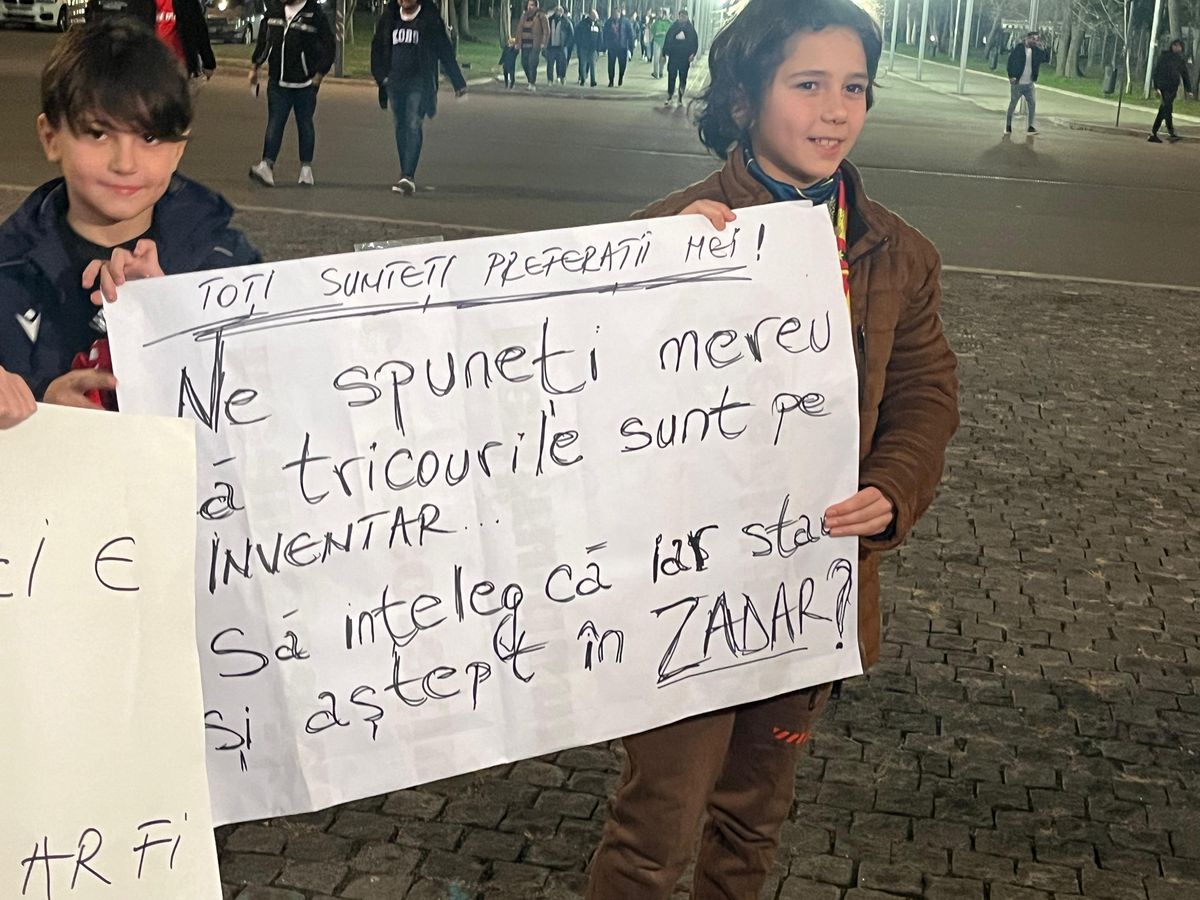 TOȚI SUNTEȚI PREFERAȚII MEI!
Ne spuneți mereu
ă tricourile sunt pe
INVENTAR...
Să ințeleg că iar stau
și aștept în ZADAR?
CI E
AR FI